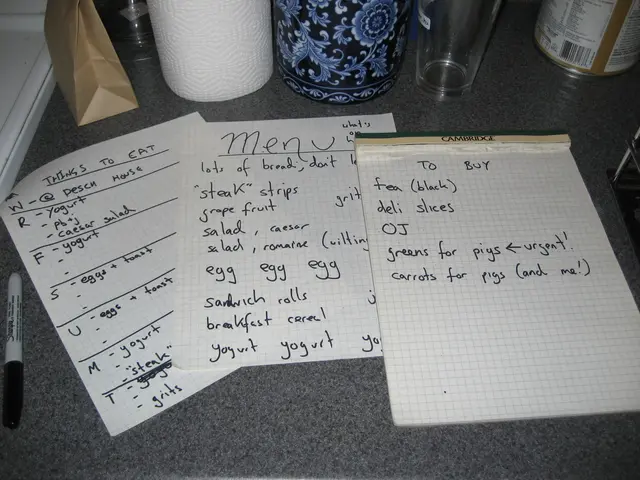 THINGS TO EAT
W - @ DESCH HOUSE
R - yogurt
- pb+j
- caesar salad
F - yogurt
-
-
S - eggs + toast
-
U - eggs + toast
-
M - yogurt
- "steak"
T -
- grits
Menu
what's
lots of bread, don't
"steak" strips
grit
grape fruit
salad, caesar
salad, romaine (wiltin
egg egg egg
sandwich rolls
breakfast cereal
yogurt yogurt yo
CAMBRIDGE
TO BUY
tea (black)
deli slices
OJ
greens for pigs ← urgent!
carrots for pigs (and me!)
Sharpie